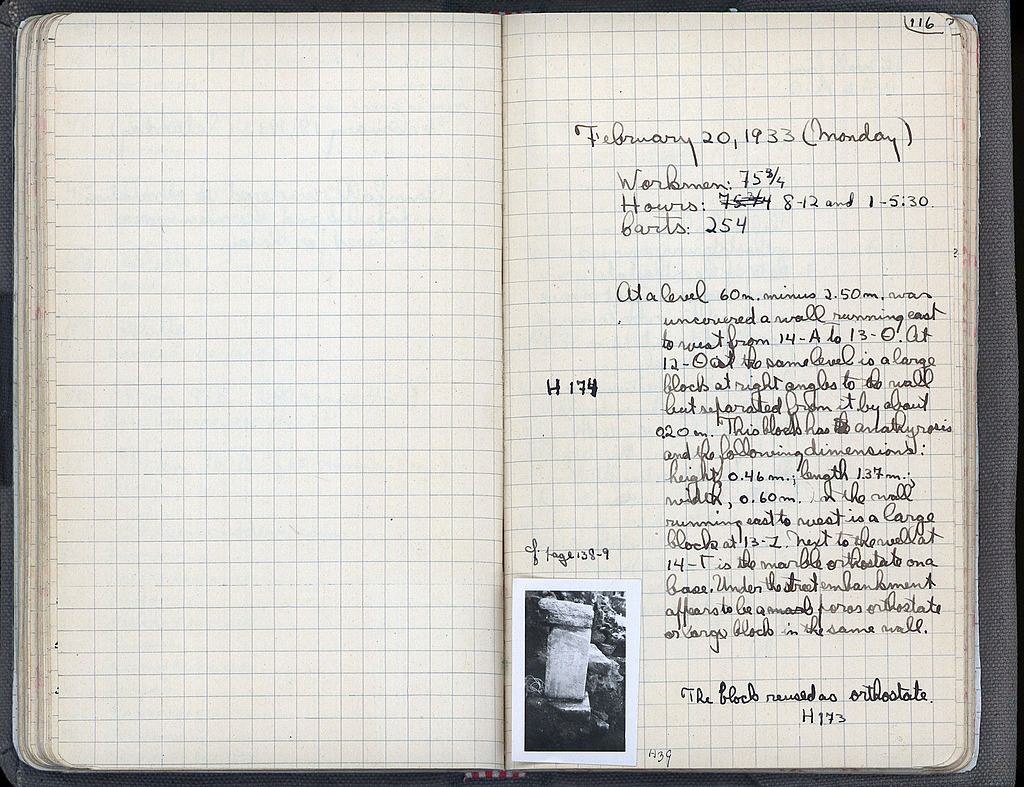 116
February 20, 1933 (Monday)
Workmen: 75 3/4
Hours: 75 3/4 8-12 and 1-5:30.
Carts: 254
?
At a level 60m. minus 2.50m. was
uncovered a wall running east
to west from 14-A to 13-Θ. At
12-Θ at the same level is a large
block at right angles to the wall
H 174
but separated from it by about
020 m. This block has anathyrosis
and the following dimensions:
height, 0.46 m.; length 1.37 m.;
width, 0.60m. In the wall
running east to west is a large
block at 13-Z. Next to the well at
cf page 138-9
14-T is the marble orthostate on a
base. Under the street embankment
appears to be a poros orthostate
or large block in the same wall.
The block reused as orthostate.
H 173
H39